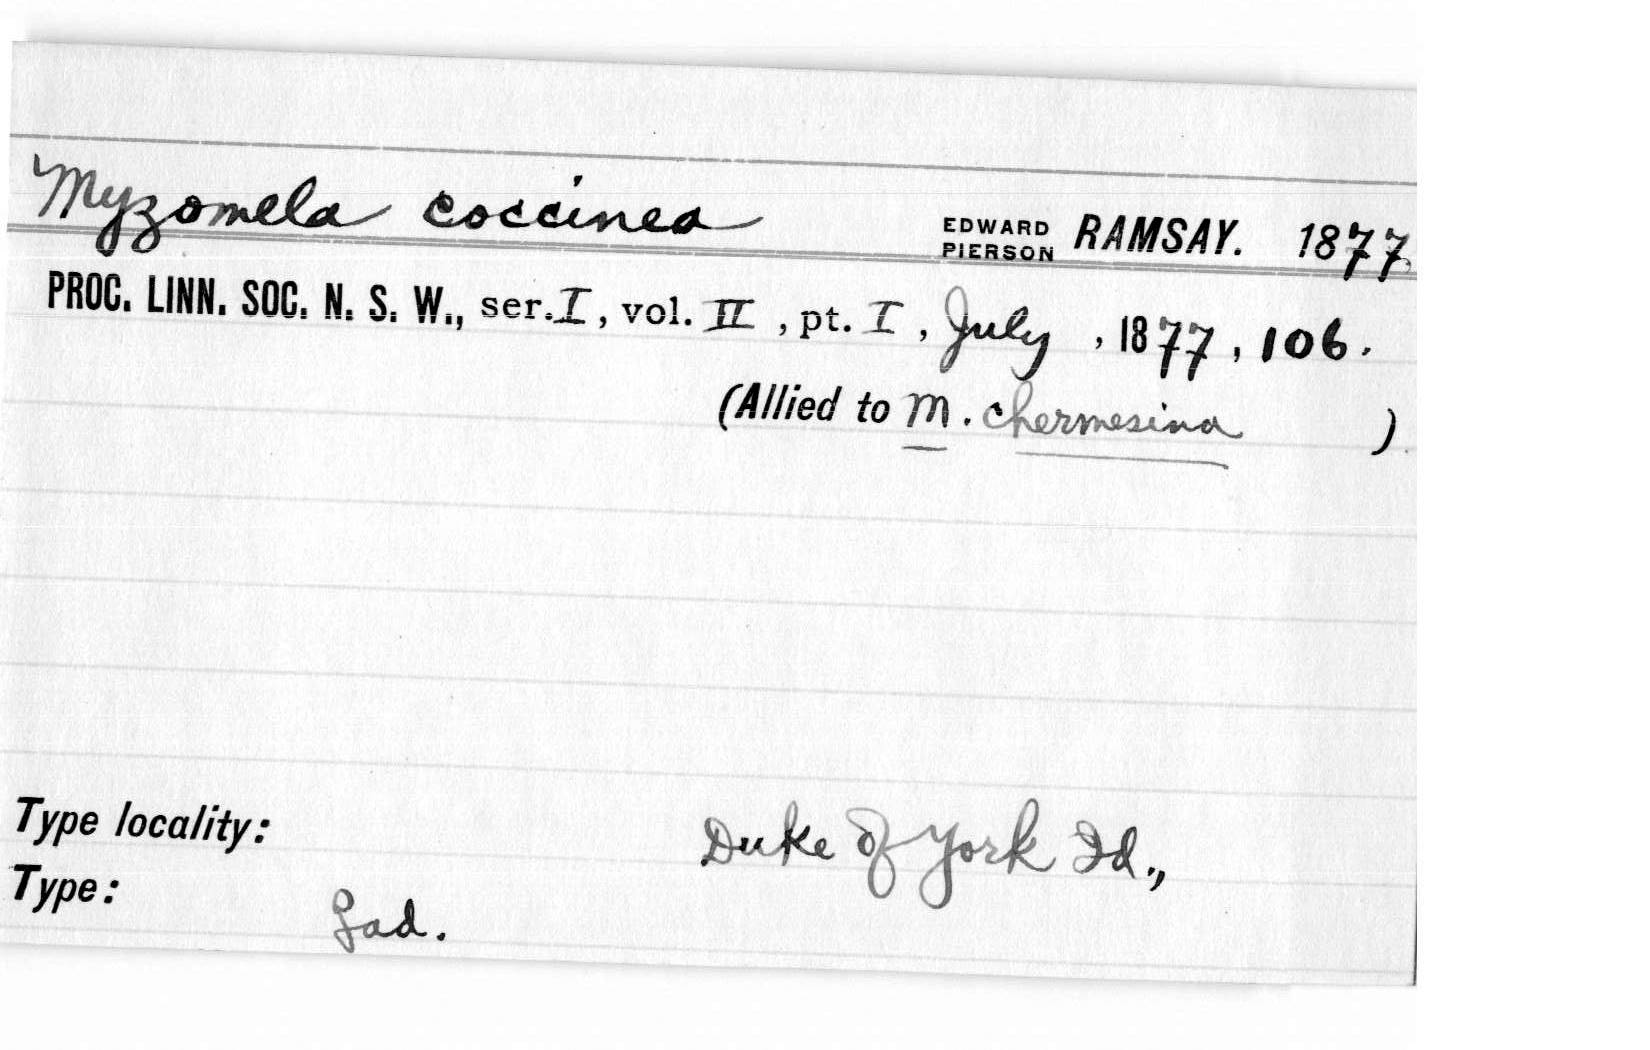 Myzomela coccinea EDWARD PIERSON RAMSAY. 1877.
PROC. LINN. SOC. N. S. W., ser. I, vol. II, pt. I, July, 1877, 106.
(Allied to M. chermesina)
Type locality: Duke of York Id.,
Type: ♂ad.